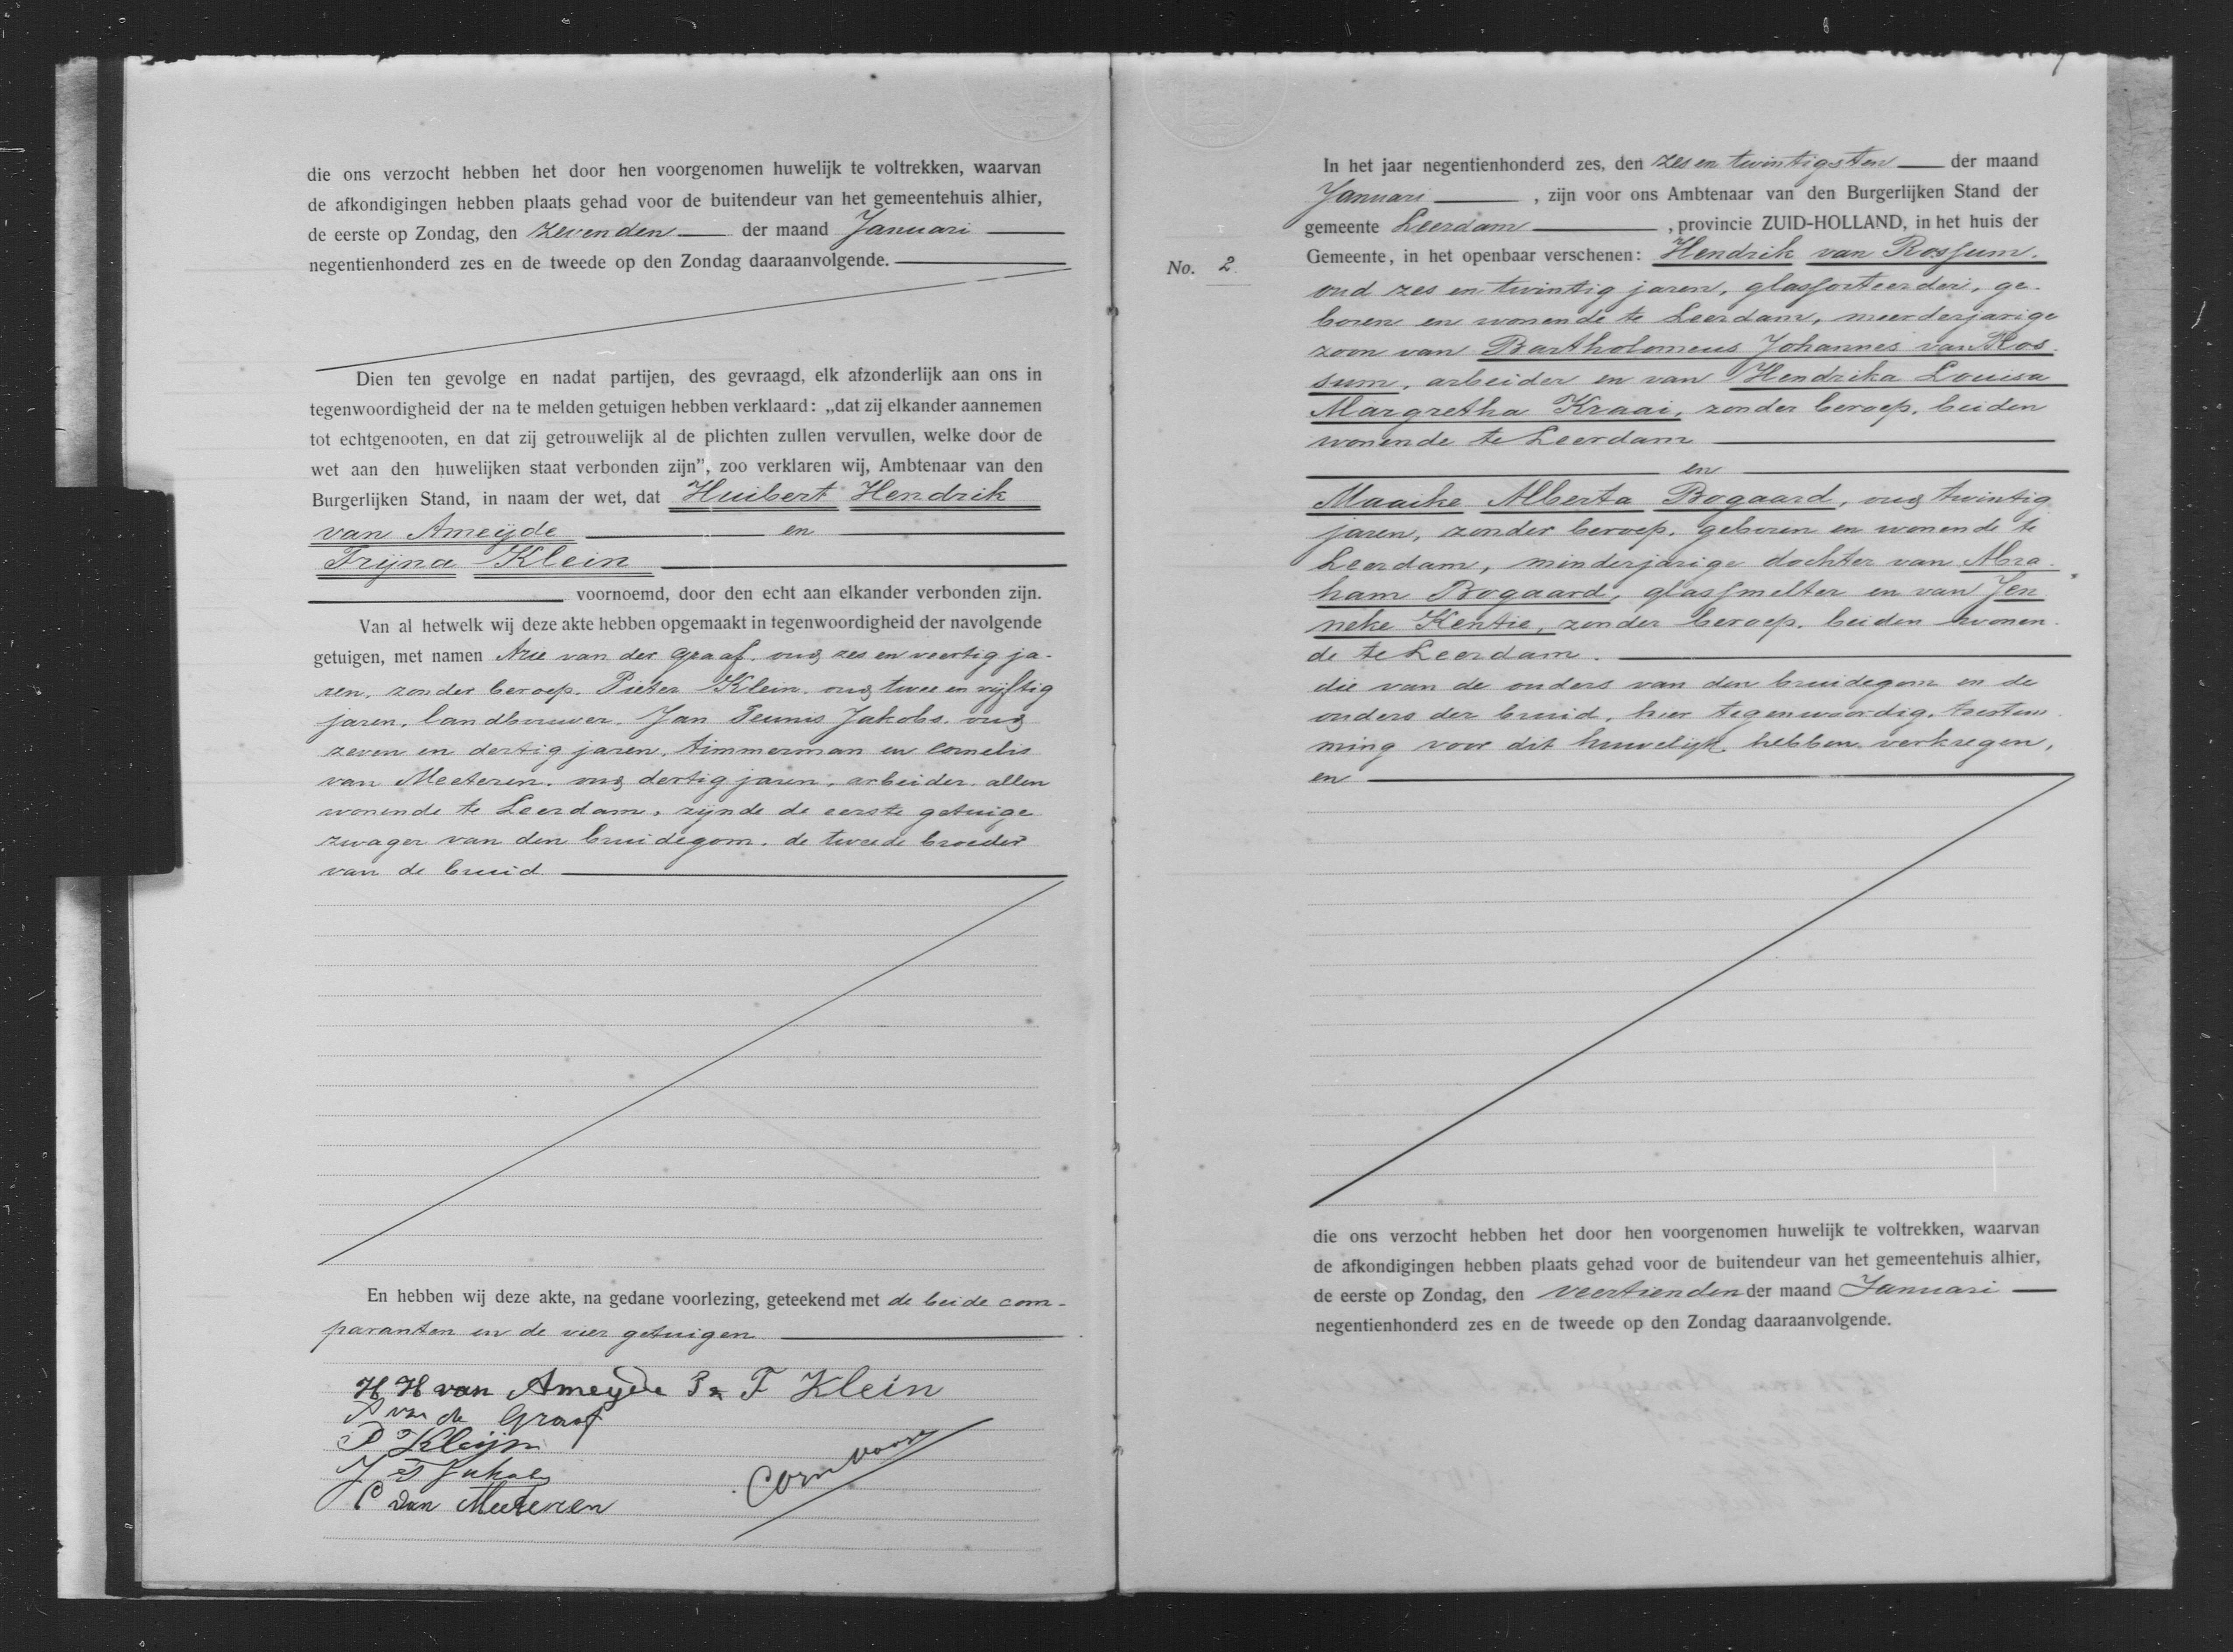 die ons verzocht hebben het door hen voorgenomen huwelijk te voltrekken, waarvan
de afkondigingen hebben plaats gehad voor de buitendeur van het gemeentehuis alhier,
de eerste op Zondag, den zevenden der maand Januari
negentienhonderd zes en de tweede op den Zondag daaraanvolgende.
Dien ten gevolge en nadat partijen, des gevraagd, elk afzonderlijk aan ons in
tegenwoordigheid der na te melden getuigen hebben verklaard: „dat zij elkander aannemen
tot echtgenooten, en dat zij getrouwelijk al de plichten zullen vervullen, welke door de
wet aan den huwelijken staat verbonden zijn”, zoo verklaren wij, Ambtenaar van den
Burgerlijken Stand, in naam der wet, dat Huibert Hendrik
van Ameijde en
Trijna Klein
voornoemd, door den echt aan elkander verbonden zijn.
Van al hetwelk wij deze akte hebben opgemaakt in tegenwoordigheid der navolgende
getuigen, met namen Arie van der Graaf, oud zes en veertig ja-
ren, zonder beroep, Pieter Klein, oud twee en vijftig
jaren, landbouwer, Jan Teunis Jakobs, oud
zeven en dertig jaren, timmerman en Cornelis
van Meeteren, oud dertig jaren, arbeider, allen
wonende te Leerdam, zijnde de eerste getuige
zwager van den bruidegom, de tweede broeder
van de bruid
En hebben wij deze akte, na gedane voorlezing, geteekend met de beide com-
paranten en de vier getuigen
H H van Ameyde T Klein
A van de Graaf
P Kleijn
J T Jakobs
C van Meeteren
No. 2
In het jaar negentienhonderd zes, den zes en twintigsten der maand
Januari, zijn voor ons Ambtenaar van den Burgerlijken Stand der
gemeente Leerdam, provincie ZUID-HOLLAND, in het huis der
Gemeente, in het openbaar verschenen: Hendrik van Rossum,
oud zes en twintig jaren, glassorteerder, ge-
boren en wonende te Leerdam, meerderjarige
zoon van Bartholomeus Johannes van Ros-
sum, arbeider en van Hendrika Louisa
Margretha Kraai, zonder beroep, beiden
wonende te Leerdam
en
Maaike Alberta Bogaard, oud twintig
jaren, zonder beroep, geboren en wonende te
Leerdam, minderjarige dochter van Abra-
ham Bogaard, glassmelter en van Jen-
neke Kentie, zonder beroep, beiden wonen-
de te Leerdam.
die van de ouders van den bruidegom en de
ouders der bruid, hier tegenwoordig, toestem-
ming voor dit huwelijk hebben verkregen,
en
die ons verzocht hebben het door hen voorgenomen huwelijk te voltrekken, waarvan
de afkondigingen hebben plaats gehad voor de buitendeur van het gemeentehuis alhier,
de eerste op Zondag, den veertienden der maand Januari
negentienhonderd zes en de tweede op den Zondag daaraanvolgende.